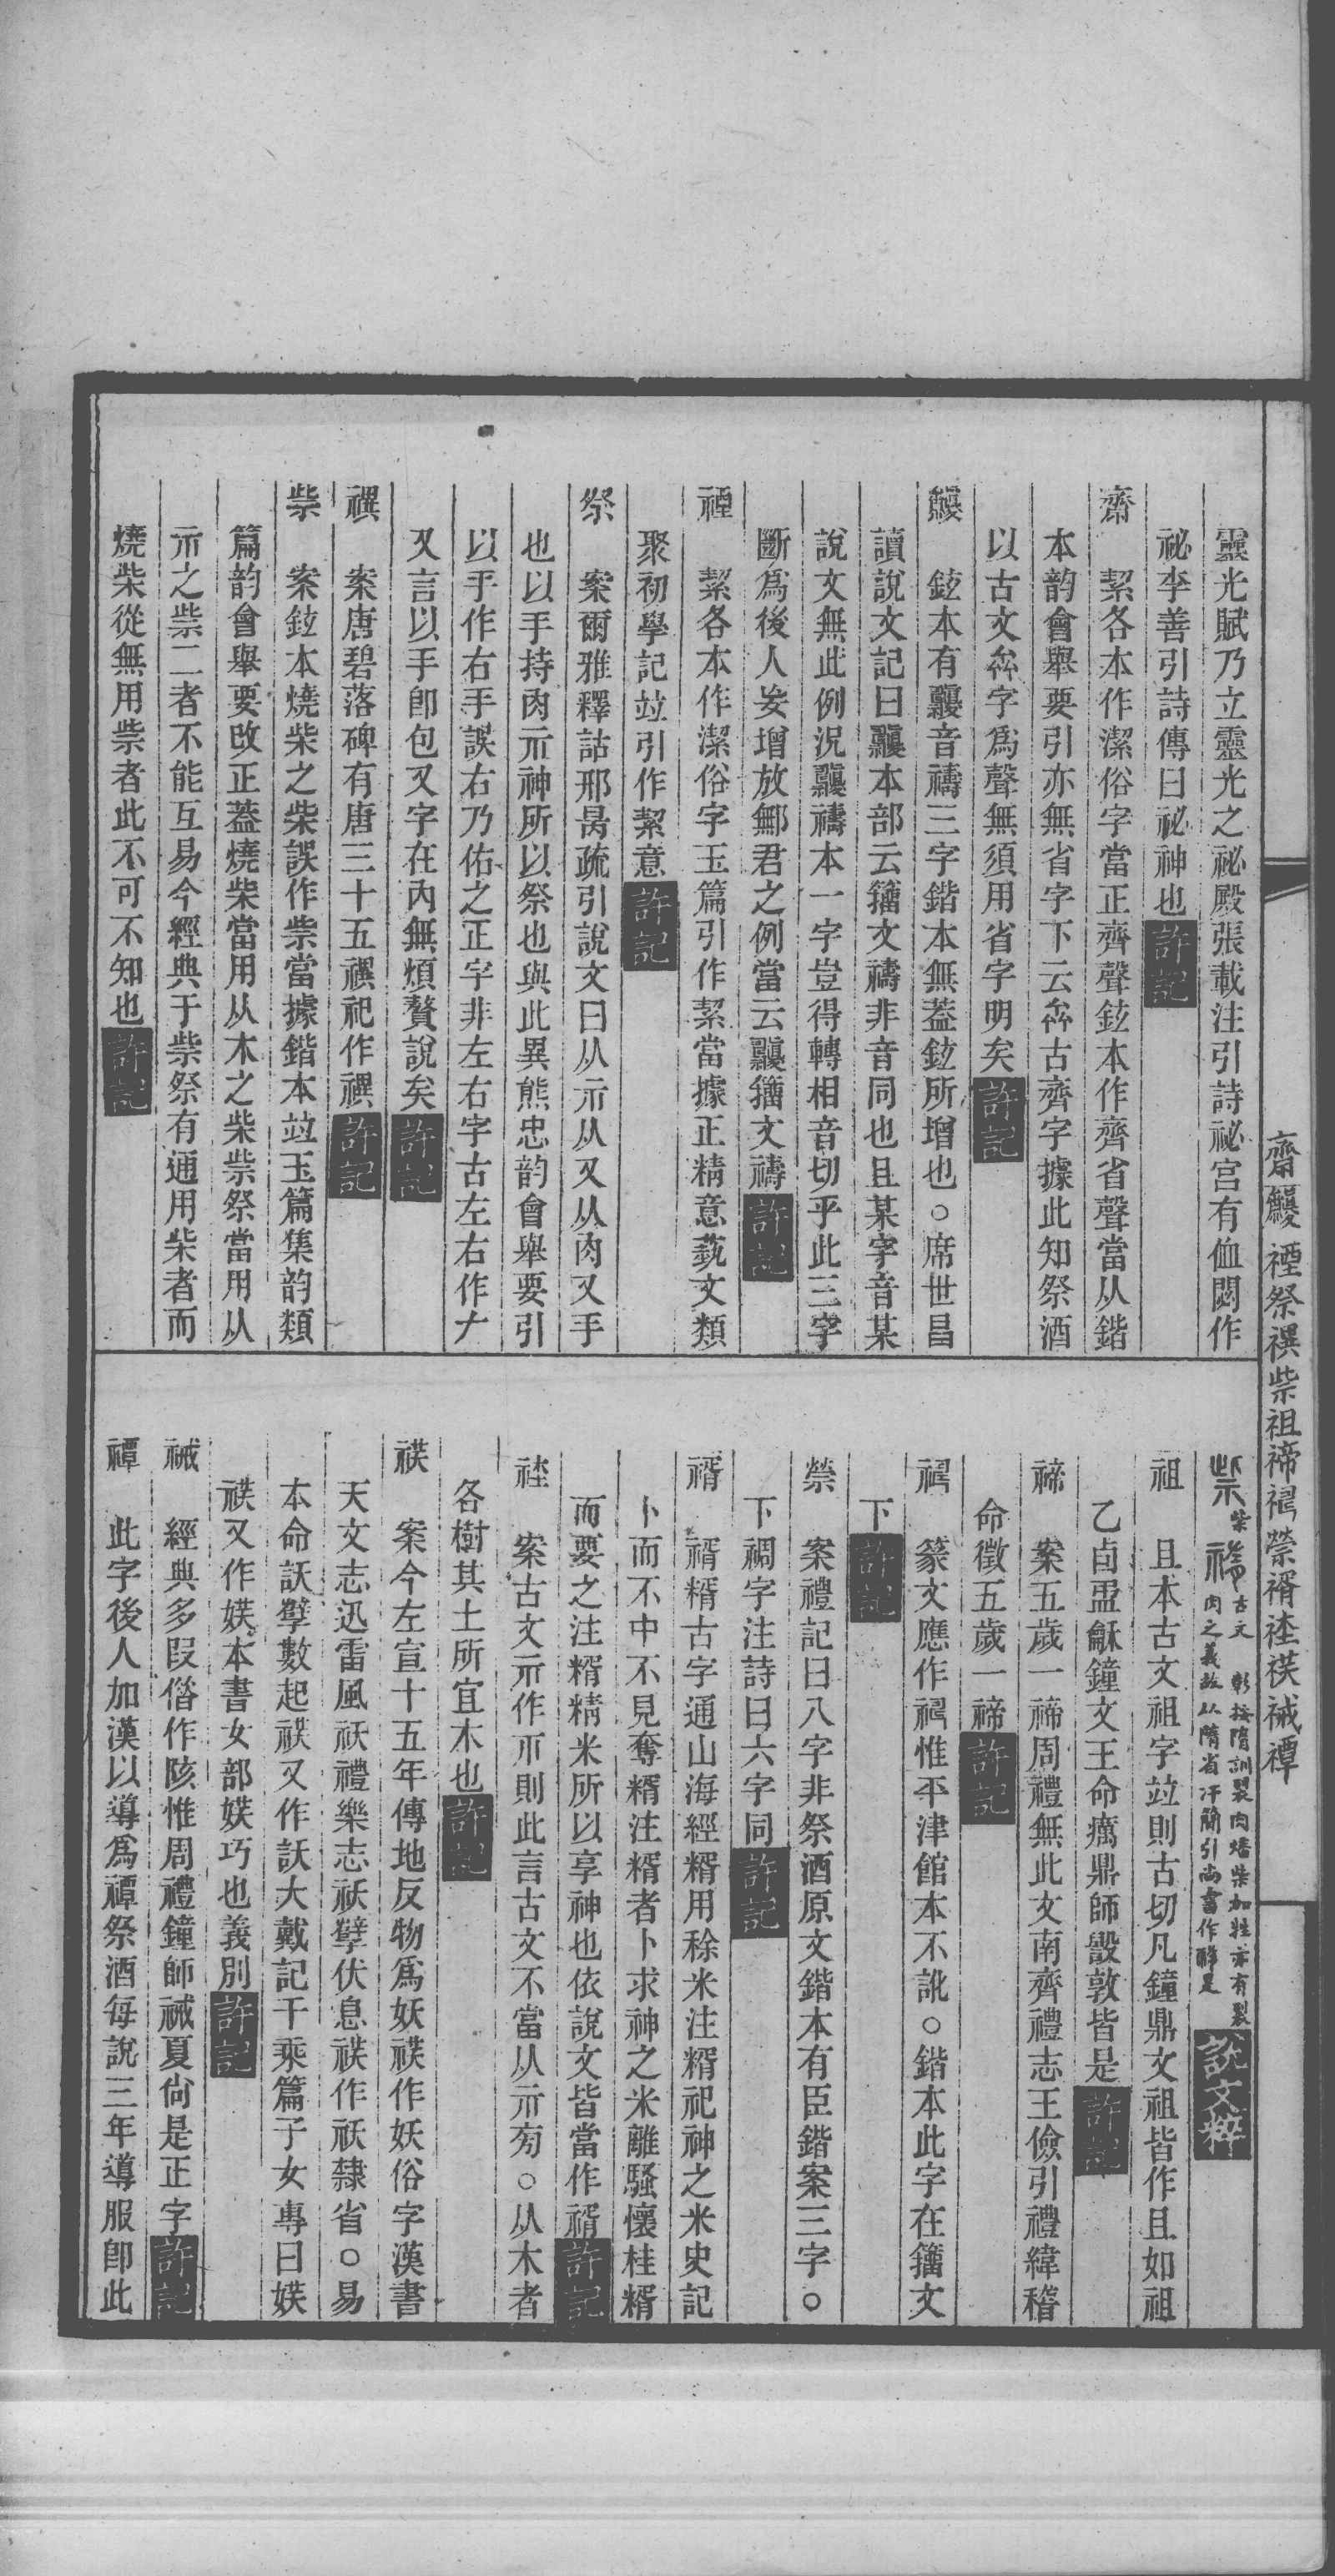 靈光賦乃立靈光之祕殿張載注引詩祕宮有侐閟作
祕李善引詩傳曰祕神也許記
齋　絜各本作潔俗字當正齊聲鉉本作齊省聲當从鍇
本韵會舉要引亦無省字下云𠫼古齊字據此知祭酒
以古文𠫼字爲聲無須用省字明矣許記
鉉本有音禱三字鍇本無葢鉉所增也○席世昌
讀說文記曰本部云籒文禱非音同也且某字音某
說文無此例況禱本一字豈得轉相音切乎此三字
斷爲後人妄增放鄦君之例當云籒文禱許記
禋　絜各本作潔俗字玉篇引作絜當據正精意藝文類
聚初學記竝引作絜意許記
祭　案爾雅釋詁邢昺疏引說文曰从示从又从肉又手
也以手持肉示神所以祭也與此異熊忠韵會舉要引
以手作右手誤右乃佑之正字非左右字古左右作𠂇
又言以手卽包又字在內無煩贅說矣許記
禩　案唐碧落碑有唐三十五禩祀作禩許記
祡　案鉉本燒柴之柴誤作祡當據鍇本竝玉篇集韵類
篇韵會舉要改正葢燒柴當用从木之柴祡祭當用从
示之祡二者不能互易今經典于祡祭有通用柴者而
燒柴從無用祡者此不可不知也許記
齋禋祭禩祡祖禘禓禜禬祩祅祴禫
說文粹
祖　且本古文祖字竝則古切凡鐘鼎文祖皆作且如祖
乙卣盄龢鐘文王命癘鼎師毀敦皆是許記
禘　案五歲一禘周禮無此文南齊禮志王儉引禮緯稽
命徵五歲一禘許記
篆文應作惟平津館本不訛○鍇本此字在籒文
下許記
禜　案禮記曰八字非祭酒原文鍇本有臣鍇案三字○
下禂字注詩曰六字同許記
糈古字通山海經糈用稌米注糈祀神之米史記
卜而不中不見奪糈注糈者卜求神之米離騷懷桂糈
而要之注糈精米所以享神也依說文皆當作許記
案古文示作則此言古文不當从示㫄○从木者
各樹其土所宜木也許記
案今左宣十五年傳地反物爲妖作妖俗字漢書
天文志迅雷風祅禮樂志祅孼伏息作祅隸省○易
本命訞孼數起又作訞大戴記千乘篇子女專曰媄
又作本書女部媄巧也義別許記
祴　經典多叚僭作陔惟周禮鐘師祴夏尙是正字許記
禫　此字後人加漢以導爲禫祭酒每說三年導服卽此